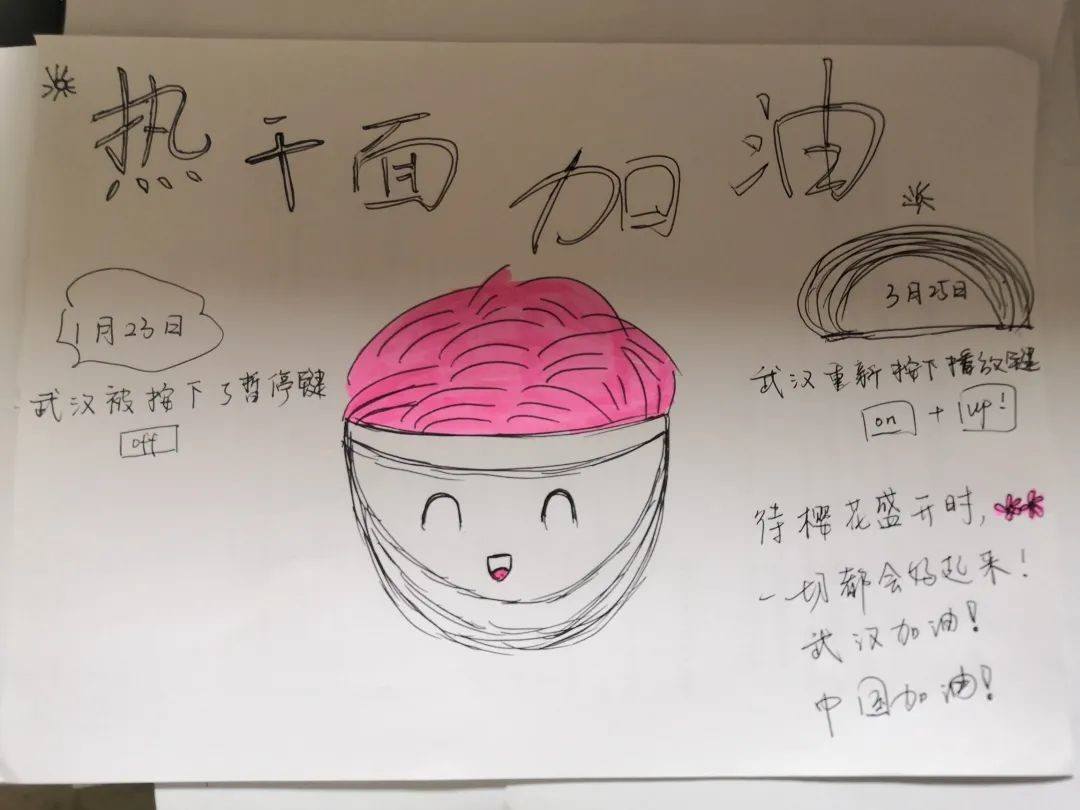 热干面加油
1月23日
武汉被按下了暂停键
off
3月25日
武汉重新按下播放键
on + up!
待樱花盛开时,
一切都会好起来!
武汉加油!
中国加油!